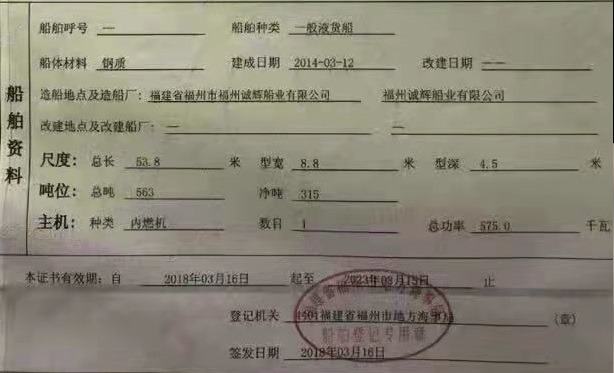 船舶资料
船舶呼号 — 船舶种类 一般液货船
船体材料 钢质 建成日期 2014-03-12 改建日期 — —
造船地点及造船厂: 福建省福州市福州诚辉船业有限公司 福州诚辉船业有限公司
改建地点及改建船厂: — —
尺度: 总长 53.8 米 型宽 8.8 米 型深 4.5 米
吨位: 总吨 563 净吨 315
主机: 种类 内燃机 数目 1 总功率 575.0 千瓦
本证书有效期: 自 2018年03月16日 起至 2023年03月15日 止
登记机关 福建省福州市地方海事局 (章)
签发日期 2018年03月16日